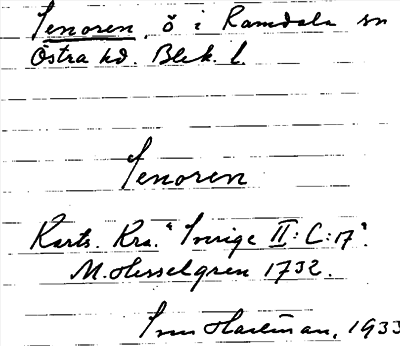 Senoren, ö i Ramdala sn
Östra hd. Blek. l.
Senoren
Karts. Kra. "Sverige II:C:17".
M. Hesselgren 1732.
Sven Hartman, 1933